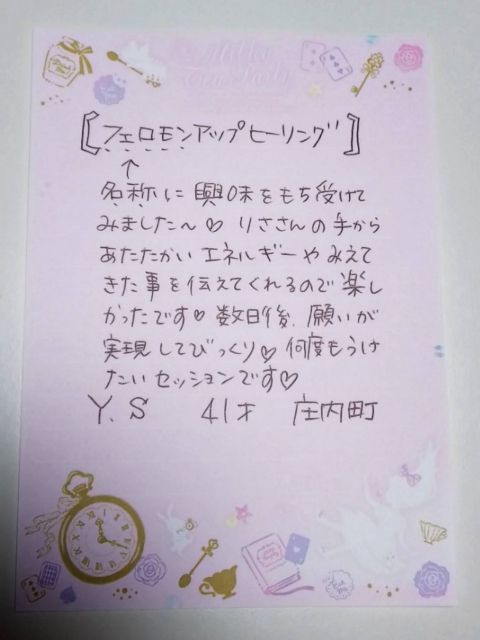 【フェロモンアップヒーリング】
↑
名称に興味をもち受けて
みました〜♡ りささんの手から
あたたかいエネルギーやみえて
きた事を伝えてくれるので楽し
かったです♡ 数日後、願いが
実現してびっくり♡ 何度もうけ
たいセッションです♡
Y.S 41才 庄内町